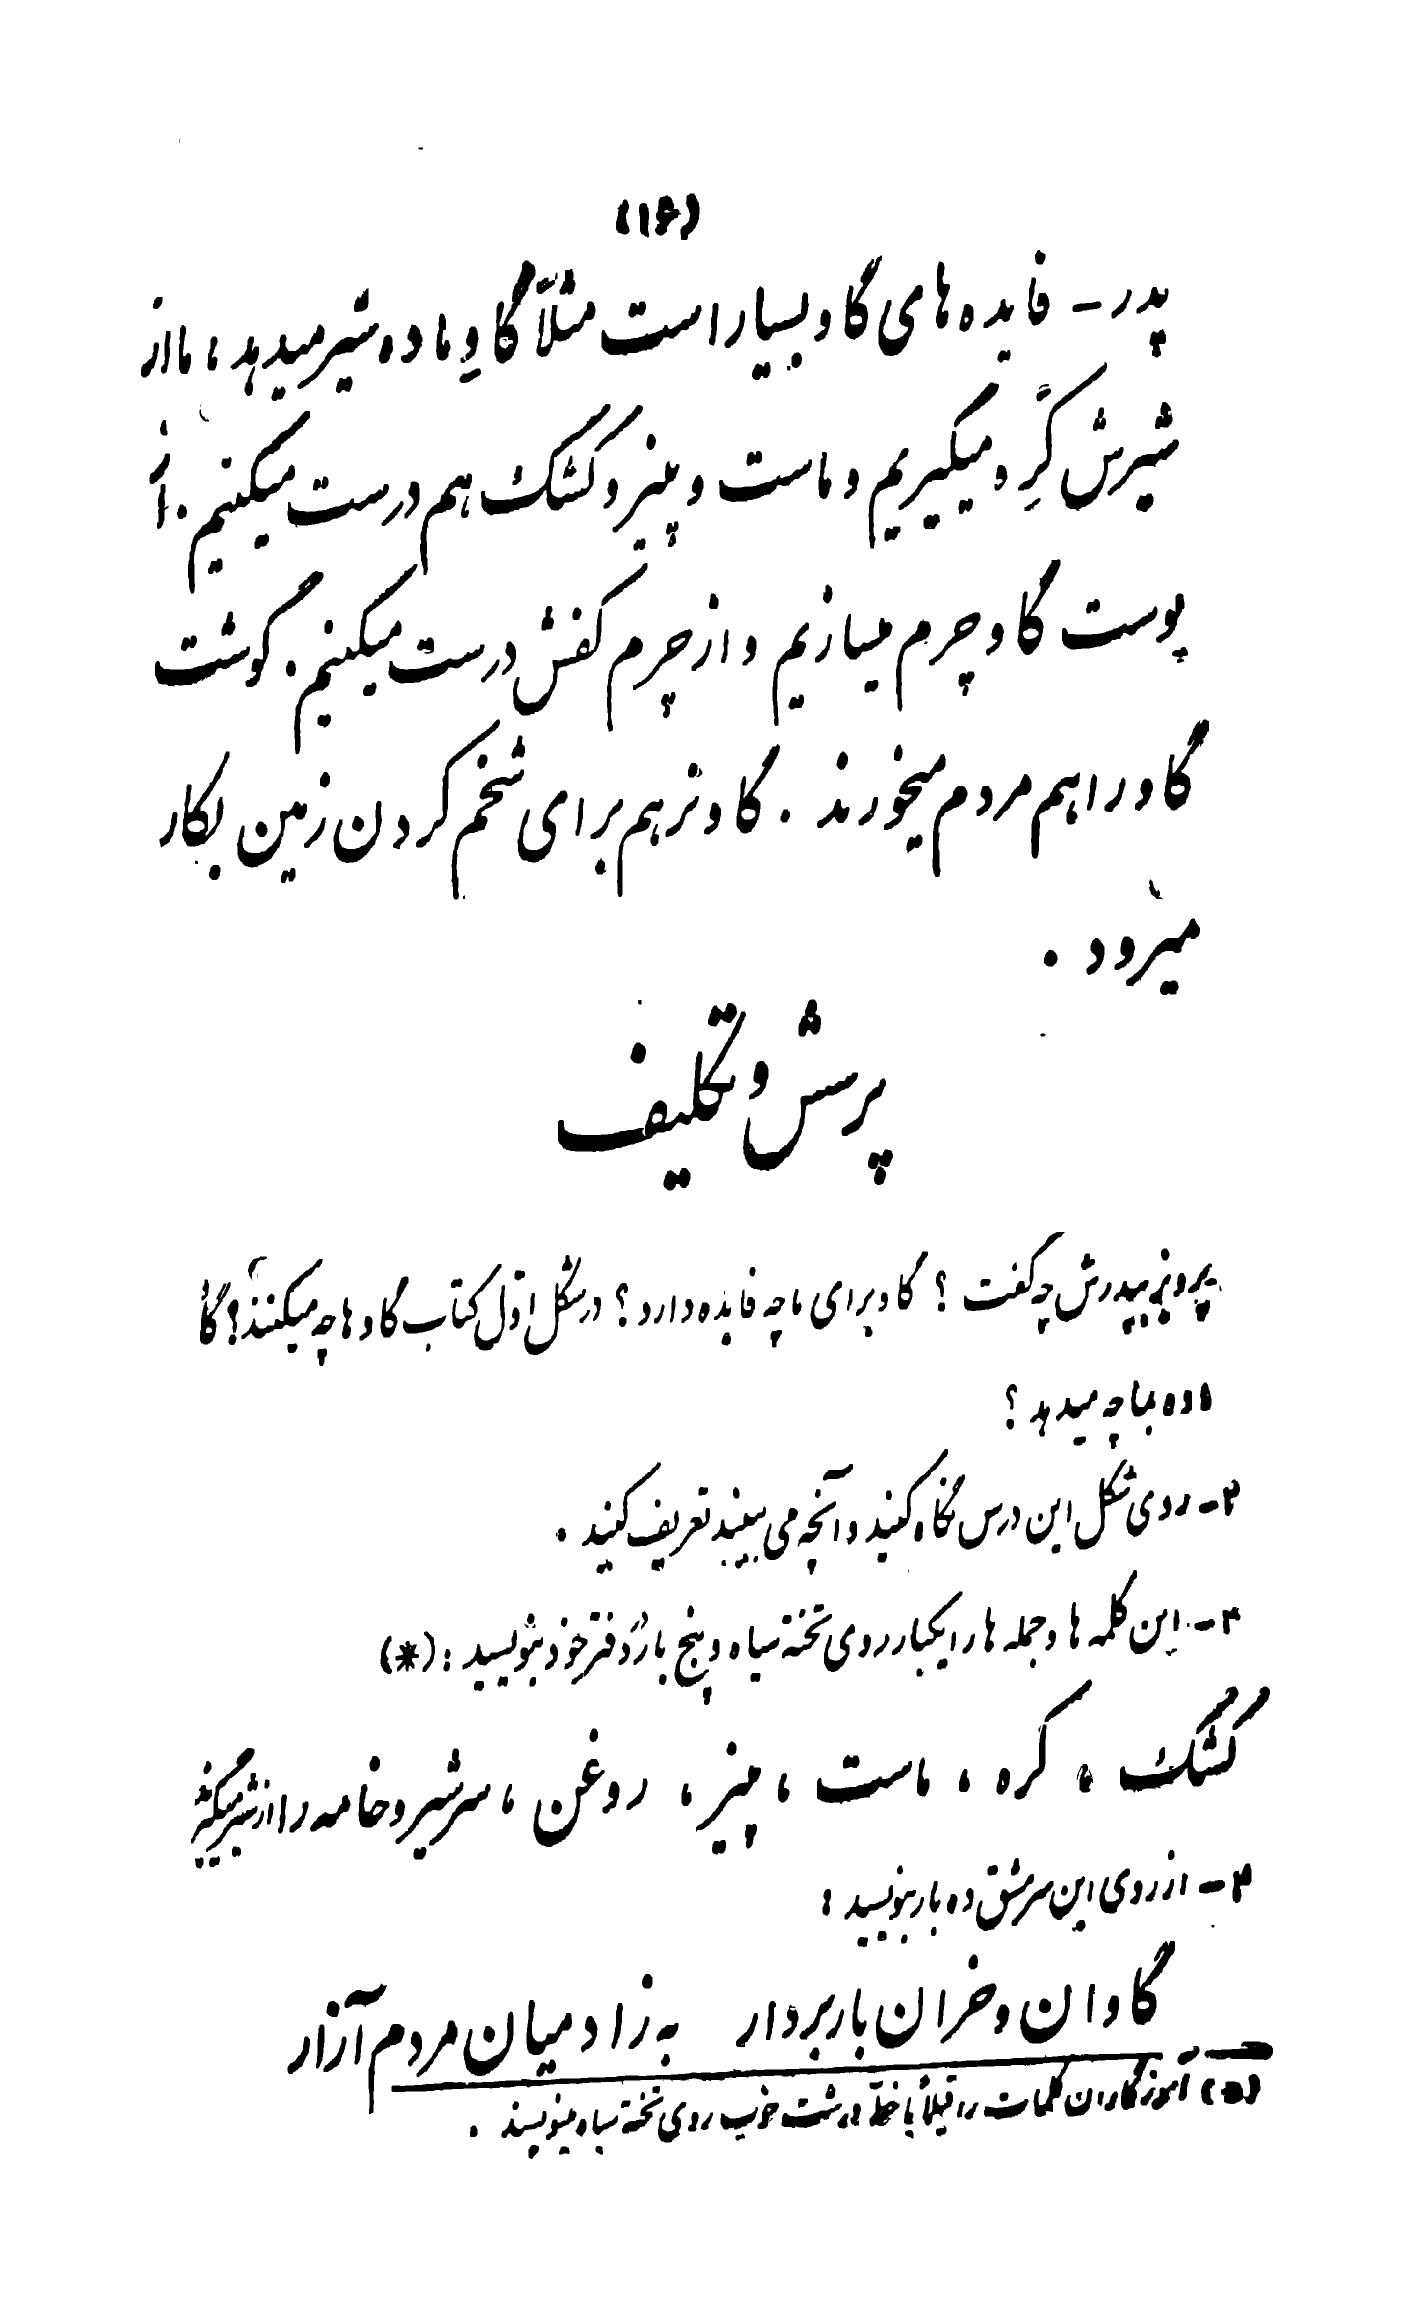 (۱۶)
پدر - فایده های گاو بسیار است مثلاً گاوِ ماده شیر میدهد ، ما از
شیرش کَرِه میگیریم و ماست و پنیر و کشک هم درست میکنیم . از
پوست گاو چرم میسازیم و از چرم کفش درست میکنیم . گوشت
گاو را هم مردم میخورند . گاو نر هم برای شخم کردن زمین بکار
میرود .
پرسش و تکلیف
پرویز بپدرش چه گفت ؟ گاو برای ما چه فایده دارد ؟ در شکل اوّل کتاب گاوها چه میکنند ؟ گاو
ماده بما چه میدهد ؟
۲ - روی شکل این درس نگاه کنید و آنچه می بینید تعریف کنید .
۳ - این کلمه ها و جمله ها را یکبار روی تخته سیاه و پنج بار در دفتر خود بنویسید : (*)
کشک ، کره ، ماست ، پنیر ، روغن ، سرشیر و خامه را از شیر میگیرند
۴ - از روی این سرمشق ده بار بنویسید :
گاوان و خران باربردار به ز آدمیان مردم آزار
(*) آموزگاران کلمات را قبلاً با خطّ درشت خوب روی تخته سیاه مینویسند .